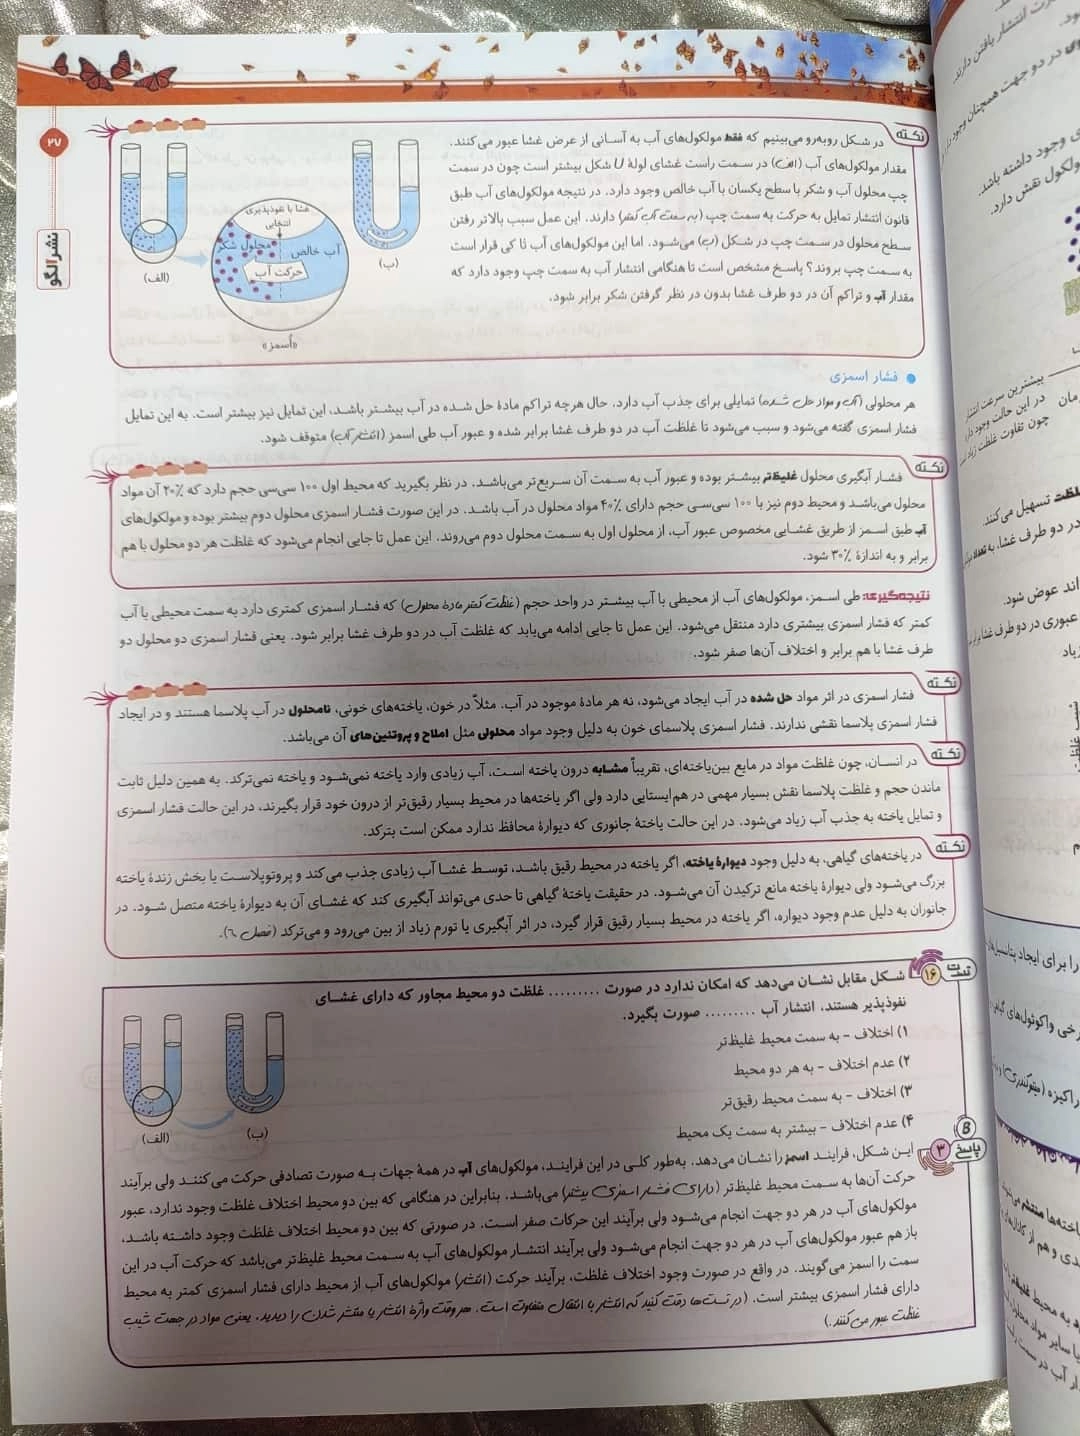 ۲۷
نشر الگو
نکته
در شکل روبه‌رو می‌بینیم که فقط مولکول‌های آب به آسانی از عرض غشا عبور می‌کنند.
مقدار مولکول‌های آب (الف) در سمت راست غشای لولهٔ U شکل بیشتر است چون در سمت
چپ محلول آب و شکر با سطح یکسان با آب خالص وجود دارد. در نتیجه مولکول‌های آب طبق
قانون انتشار تمایل به حرکت به سمت چپ (به سمت آب کمتر) دارند. این عمل سبب بالاتر رفتن
سطح محلول در سمت چپ در شکل (ب) می‌شود. اما این مولکول‌های آب تا کی قرار است
به سمت چپ بروند؟ پاسخ مشخص است تا هنگامی انتشار آب به سمت چپ وجود دارد که
مقدار آب و تراکم آن در دو طرف غشا بدون در نظر گرفتن شکر برابر شود.
غشا با نفوذپذیری
انتخابی
محلول شکر
آب خالص
حرکت آب
(الف)
(ب)
«اُسمز»
فشار اسمزی
هر محلولی (آب و مواد حل شده) تمایلی برای جذب آب دارد. حال هرچه تراکم مادهٔ حل شده در آب بیشتر باشد، این تمایل نیز بیشتر است. به این تمایل
فشار اسمزی گفته می‌شود و سبب می‌شود تا غلظت آب در دو طرف غشا برابر شده و عبور آب طی اسمز (انتشار آب) متوقف شود.
نکته
فشار آبگیری محلول غلیظ‌تر بیشتر بوده و عبور آب به سمت آن سریع‌تر می‌باشد. در نظر بگیرید که محیط اول ۱۰۰ سی‌سی حجم دارد که ۲۰٪ آن مواد
محلول می‌باشد و محیط دوم نیز با ۱۰۰ سی‌سی حجم دارای ۴۰٪ مواد محلول در آب باشد. در این صورت فشار اسمزی محلول دوم بیشتر بوده و مولکول‌های
آب طبق اسمز از طریق غشایی مخصوص عبور آب، از محلول اول به سمت محلول دوم می‌روند. این عمل تا جایی انجام می‌شود که غلظت هر دو محلول با هم
برابر و به اندازهٔ ۳۰٪ شود.
نتیجه‌گیری: طی اسمز، مولکول‌های آب از محیطی با آب بیشتر در واحد حجم (غلظت کمتر مادهٔ محلول) که فشار اسمزی کمتری دارد به سمت محیطی با آب
کمتر که فشار اسمزی بیشتری دارد منتقل می‌شود. این عمل تا جایی ادامه می‌یابد که غلظت آب در دو طرف غشا برابر شود. یعنی فشار اسمزی دو محلول دو
طرف غشا با هم برابر و اختلاف آن‌ها صفر شود.
نکته
فشار اسمزی در اثر مواد حل شده در آب ایجاد می‌شود، نه هر مادهٔ موجود در آب. مثلاً در خون، یاخته‌های خونی، نامحلول در آب پلاسما هستند و در ایجاد
فشار اسمزی پلاسما نقشی ندارند. فشار اسمزی پلاسمای خون به دلیل وجود مواد محلولی مثل املاح و پروتئین‌های آن می‌باشد.
نکته
در انسان، چون غلظت مواد در مایع بین‌یاخته‌ای، تقریباً مشابه درون یاخته است، آب زیادی وارد یاخته نمی‌شود و یاخته نمی‌ترکد. به همین دلیل ثابت
ماندن حجم و غلظت پلاسما نقش بسیار مهمی در هم‌ایستایی دارد ولی اگر یاخته‌ها در محیط بسیار رقیق‌تر از درون خود قرار بگیرند، در این حالت فشار اسمزی
و تمایل یاخته به جذب آب زیاد می‌شود. در این حالت یاختهٔ جانوری که دیوارهٔ محافظ ندارد ممکن است بترکد.
نکته
در یاخته‌های گیاهی، به دلیل وجود دیوارهٔ یاخته، اگر یاخته در محیط رقیق باشد، توسط غشا آب زیادی جذب می‌کند و پروتوپلاست یا بخش زندهٔ یاخته
بزرگ می‌شود ولی دیوارهٔ یاخته مانع ترکیدن آن می‌شود. در حقیقت یاختهٔ گیاهی تا حدی می‌تواند آبگیری کند که غشای آن به دیوارهٔ یاخته متصل شود. در
جانوران به دلیل عدم وجود دیواره، اگر یاخته در محیط بسیار رقیق قرار گیرد، در اثر آبگیری یا تورم زیاد از بین می‌رود و می‌ترکد (فصل ۶).
تست ۱۶
شکل مقابل نشان می‌دهد که امکان ندارد در صورت ......... غلظت دو محیط مجاور که دارای غشای
نفوذپذیر هستند، انتشار آب ......... صورت بگیرد.
۱) اختلاف - به سمت محیط غلیظ‌تر
۲) عدم اختلاف - به هر دو محیط
۳) اختلاف - به سمت محیط رقیق‌تر
۴) عدم اختلاف - بیشتر به سمت یک محیط
(الف)
(ب)
B
پاسخ ۳
این شکل، فرایند اسمز را نشان می‌دهد. به‌طور کلی در این فرایند، مولکول‌های آب در همهٔ جهات به صورت تصادفی حرکت می‌کنند ولی برآیند
حرکت آن‌ها به سمت محیط غلیظ‌تر (دارای فشار اسمزی بیشتر) می‌باشد. بنابراین در هنگامی که بین دو محیط اختلاف غلظت وجود ندارد، عبور
مولکول‌های آب در هر دو جهت انجام می‌شود ولی برآیند این حرکات صفر است. در صورتی که بین دو محیط اختلاف غلظت وجود داشته باشد،
باز هم عبور مولکول‌های آب در هر دو جهت انجام می‌شود ولی برآیند انتشار مولکول‌های آب به سمت محیط غلیظ‌تر می‌باشد که حرکت آب در این
سمت را اسمز می‌گویند. در واقع در صورت وجود اختلاف غلظت، برآیند حرکت (انتشار) مولکول‌های آب از محیط دارای فشار اسمزی کمتر به محیط
دارای فشار اسمزی بیشتر است. (در تست‌ها دقت کنید که انتشار با انتقال متفاوت است. هر وقت واژهٔ انتشار یا منتشر شدن را دیدید، یعنی مواد در جهت شیب
غلظت عبور می‌کنند.)